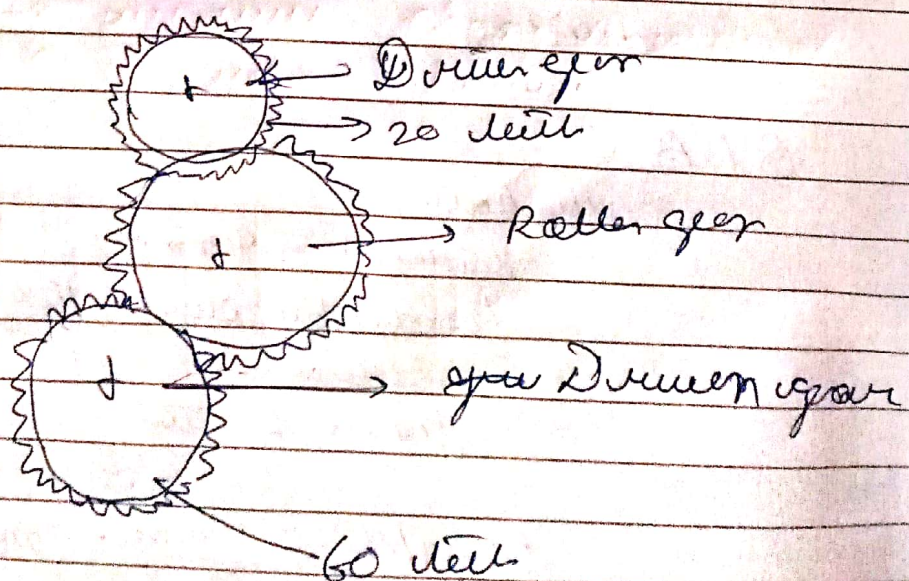 Driver gear
20 teeth
Roller gear
Driven gear
60 teeth